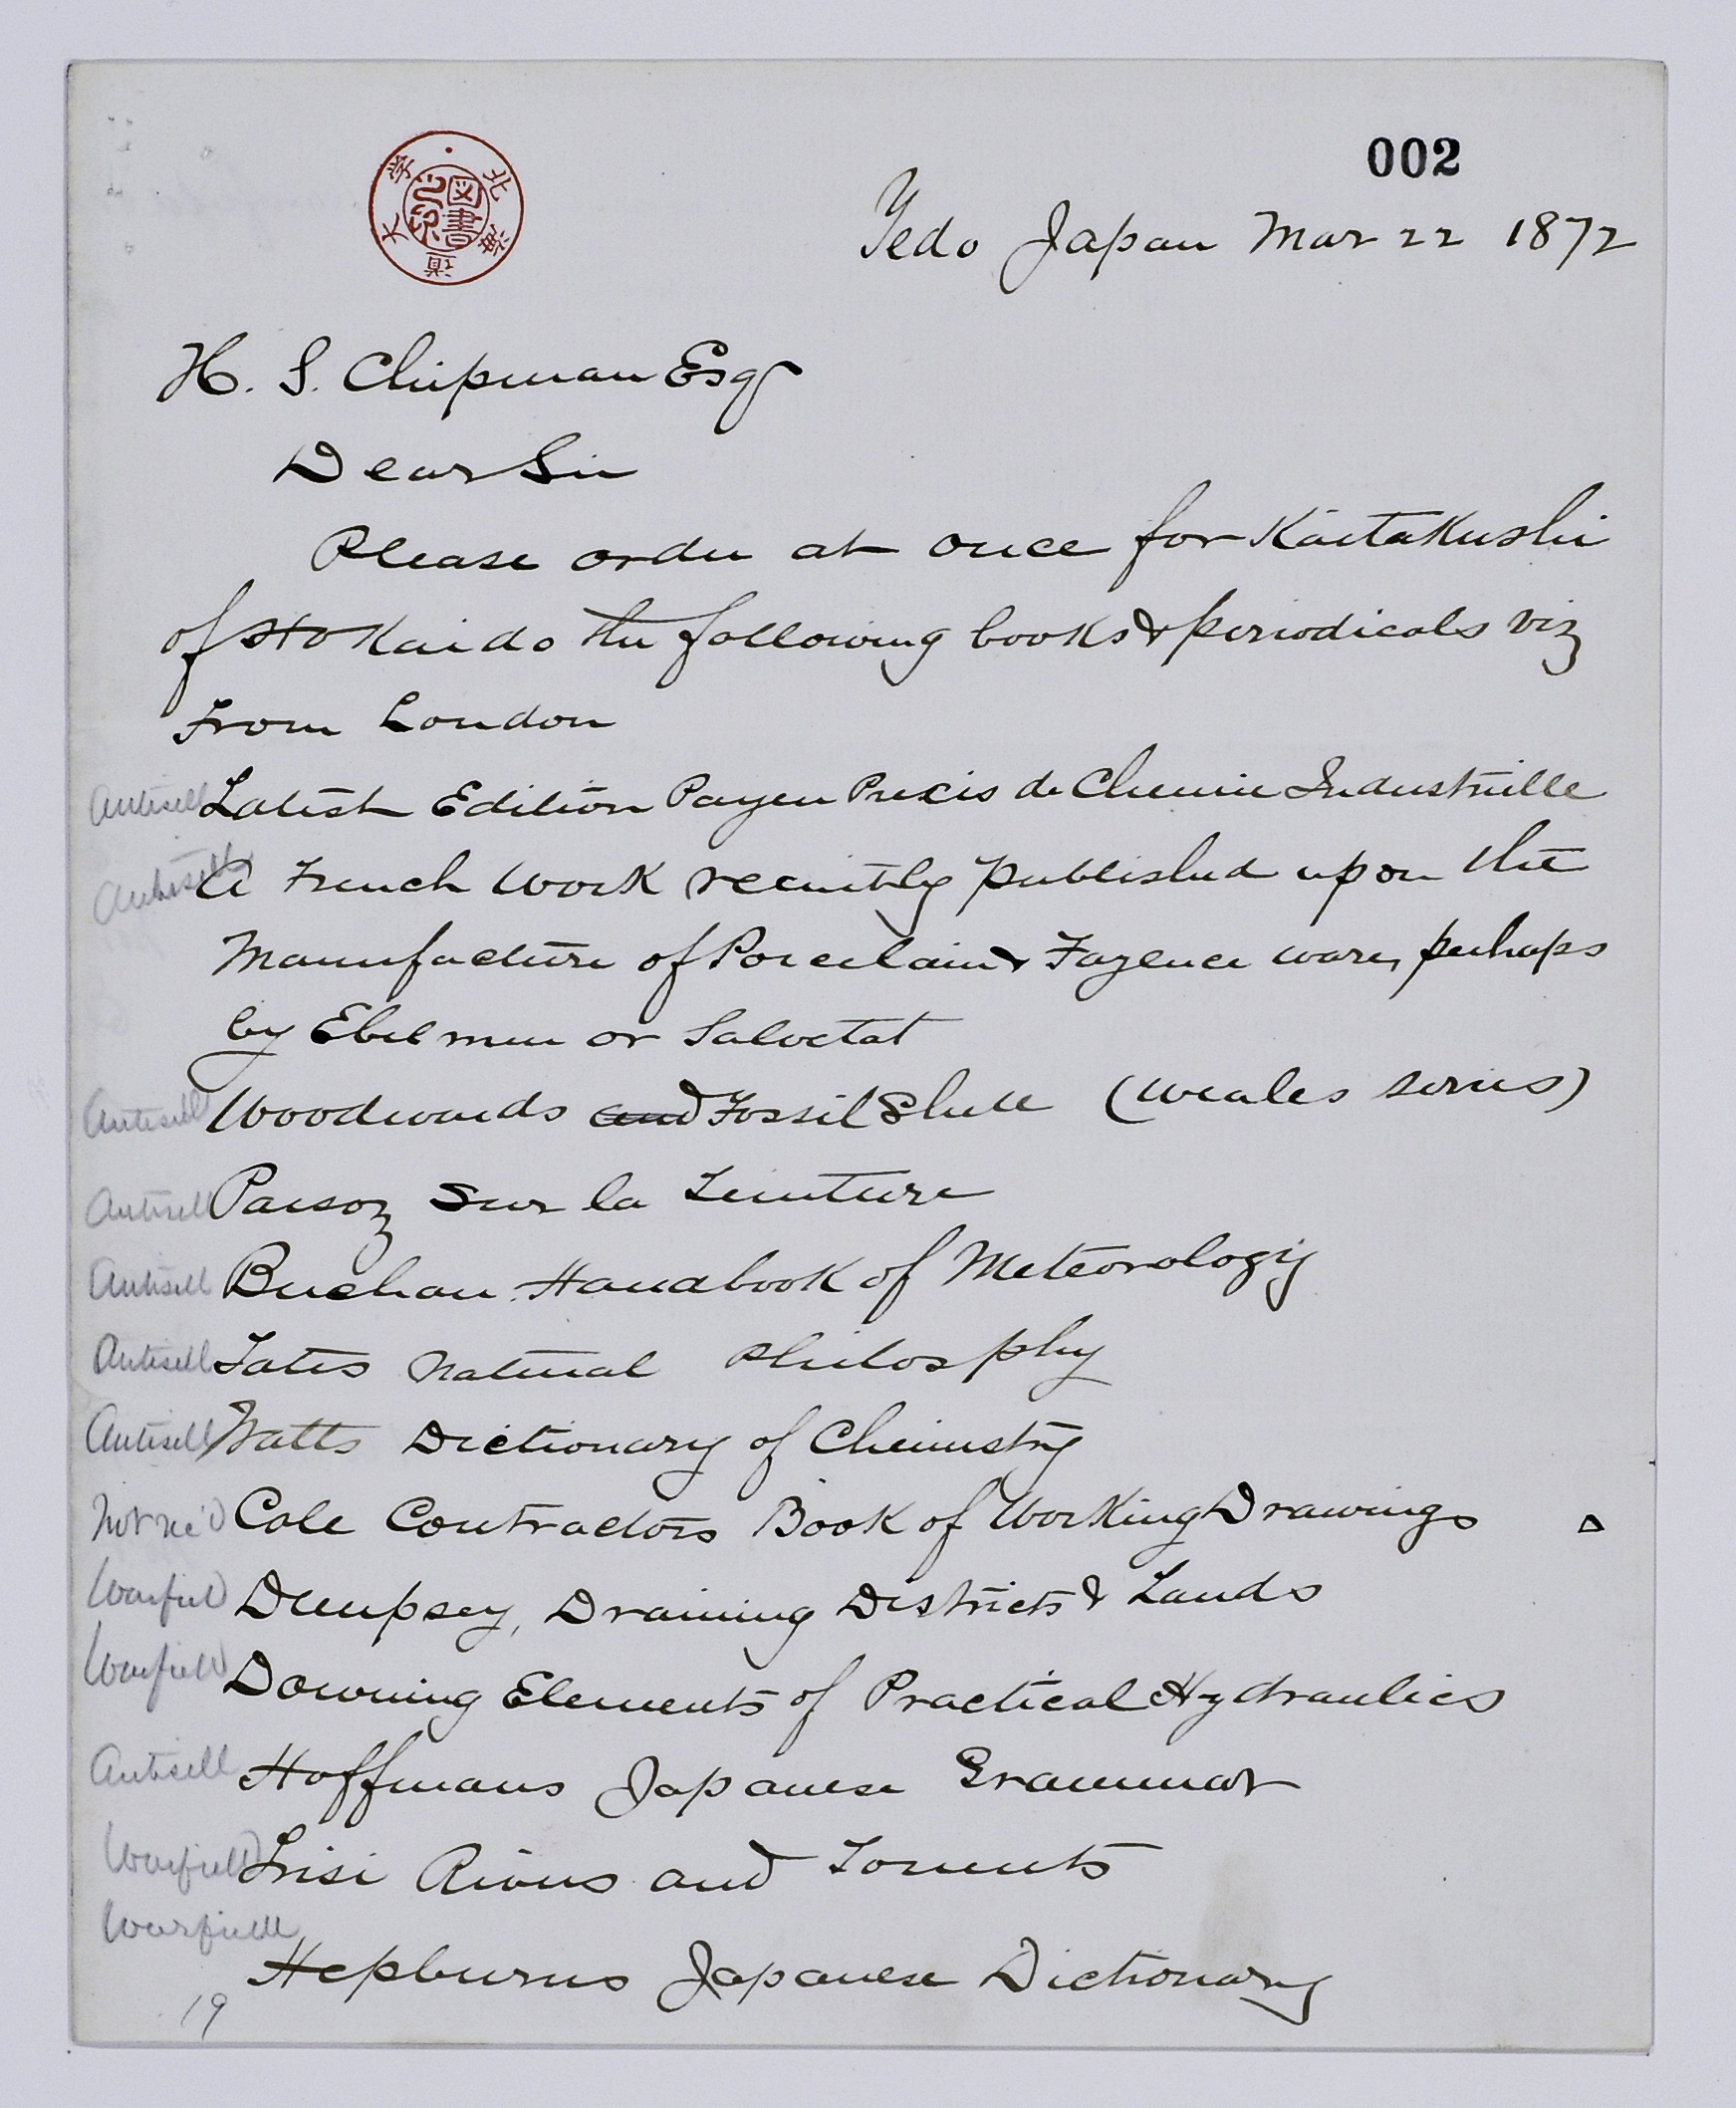 002
北海道大学
図書之印
Yedo Japan Mar 22 1872
H. S. Chipman Esqr
Dear Sir
Please order at once for Kaitakushi
of Hokaido the following books & periodicals viz
From London
Antisell Latest Edition Payen Precis de Chemie Industrielle
Antisell A French Work recently published upon the
Manufacture of Porcelain & Fayence ware, perhaps
by Ebelmen or Salvetat
Antisell Woodwards and Fossil Shell (Weales series)
Antisell Persoz Sur la Teinture
Antisell Buchan Handbook of Meteorology
Antisell Tates Natural Philosphy
Antisell Watts Dictionary of Chemistry
Not rec'd Cole Contractors Book of Working Drawings
Warfield Dempsey, Draining Districts & Lands
Warfield Downing Elements of Practical Hydraulics
Antisell Hoffmans Japanese Grammar
Warfield Frisi Rivers and Torrents
Warfield
Hepburns Japanese Dictionary
19